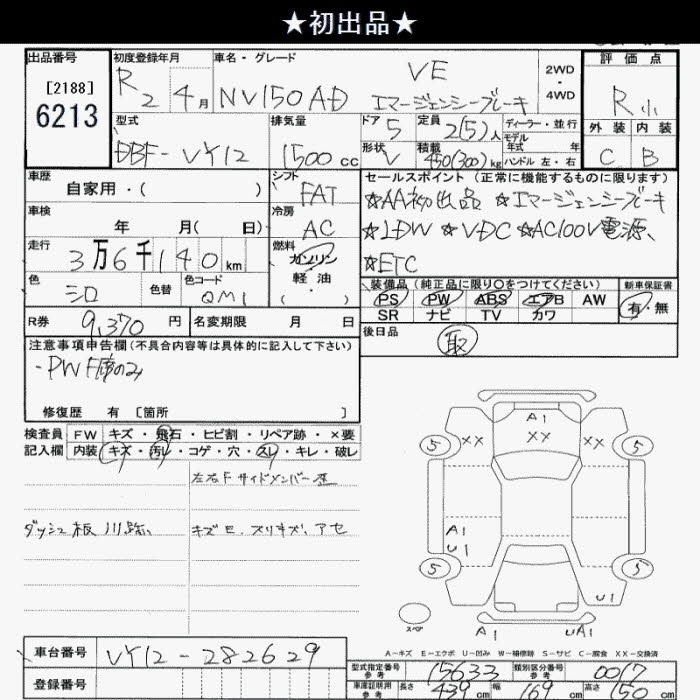 ★初出品★
出品番号
[2188]
6213
初度登録年月
R2 4月
車名・グレード
VE
NV150AD エマージェンシーブレーキ
2WD
・
4WD
評価点
R小
外装 内装
C B
型式
DBF-VY12
排気量
1500cc
ドア
5
定員
2(5)人
ディーラー・並行
モデル
年式 年
形状
V
積載
450(300)kg
ハンドル 左・右
車歴
自家用・( )
シフト
FAT
セールスポイント (正常に機能するものに限ります)
☆AA初出品 ☆エマージェンシーブレーキ
☆LDW ☆VDC ☆AC100V電源、
☆ETC
車検
年 月( 日)
冷房
AC
走行
3万6千140km
燃料
ガソリン
軽油
・( )
色
シロ
色替
色コード
QM1
装備品 (純正品に限り○をつけてください)
PS PW ABS エアB AW
SR ナビ TV カワ
新車保証書
有・無
R券 9,370円
名変期限 月 日
後日品
取
注意事項申告欄(不具合内容等は具体的に記入して下さい)
・PWF席のみ
修復歴 有 [箇所 ]
検査員 FW キズ・飛石・ヒビ割・リペア跡・×要
記入欄 内装 キズ・汚レ・コゲ・穴・スレ・キレ・破レ
左右Fサイドメンバー
ダッシュ板
キズE、スリキズ、アセ
A1
XX XX XX
5 5
A1
U1
5 5
U1
スペア
A1 UA1
A-キズ E-エクボ U-凹み W-補修跡 S-サビ C-腐食 XX-交換済
車台番号 VY12-282629
登録番号
型式指定番号
参考
15633
類別区分番号
参考
0017
車庫証明用
参考
長さ 439cm 幅 169cm 高さ 150cm